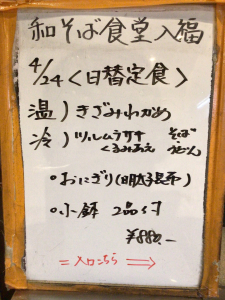 和そば食堂入福
4/24〈日替定食〉
温）きざみわかめ
冷）ツルムラサキ そば
くるみあえ うどん
・おにぎり(明太子昆布)
・小鉢 2品付
¥880.-
＝入口こちら⇒